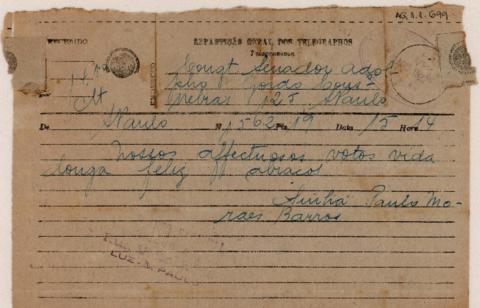 AG.1.1-699
REPARTIÇÃO GERAL DOS TELEGRAPHOS
Telegramma
Congt Senador Adol-
pho Gordo Cons.
Nebias 125 SPaulo
De SPaulo N. 1562 Pls. 19 Data 15 Hora 14
Nossos affectuosos votos vida
longa feliz abraços
Sinhá Paulo Mo-
raes Barros
LUZ-S. PAULO